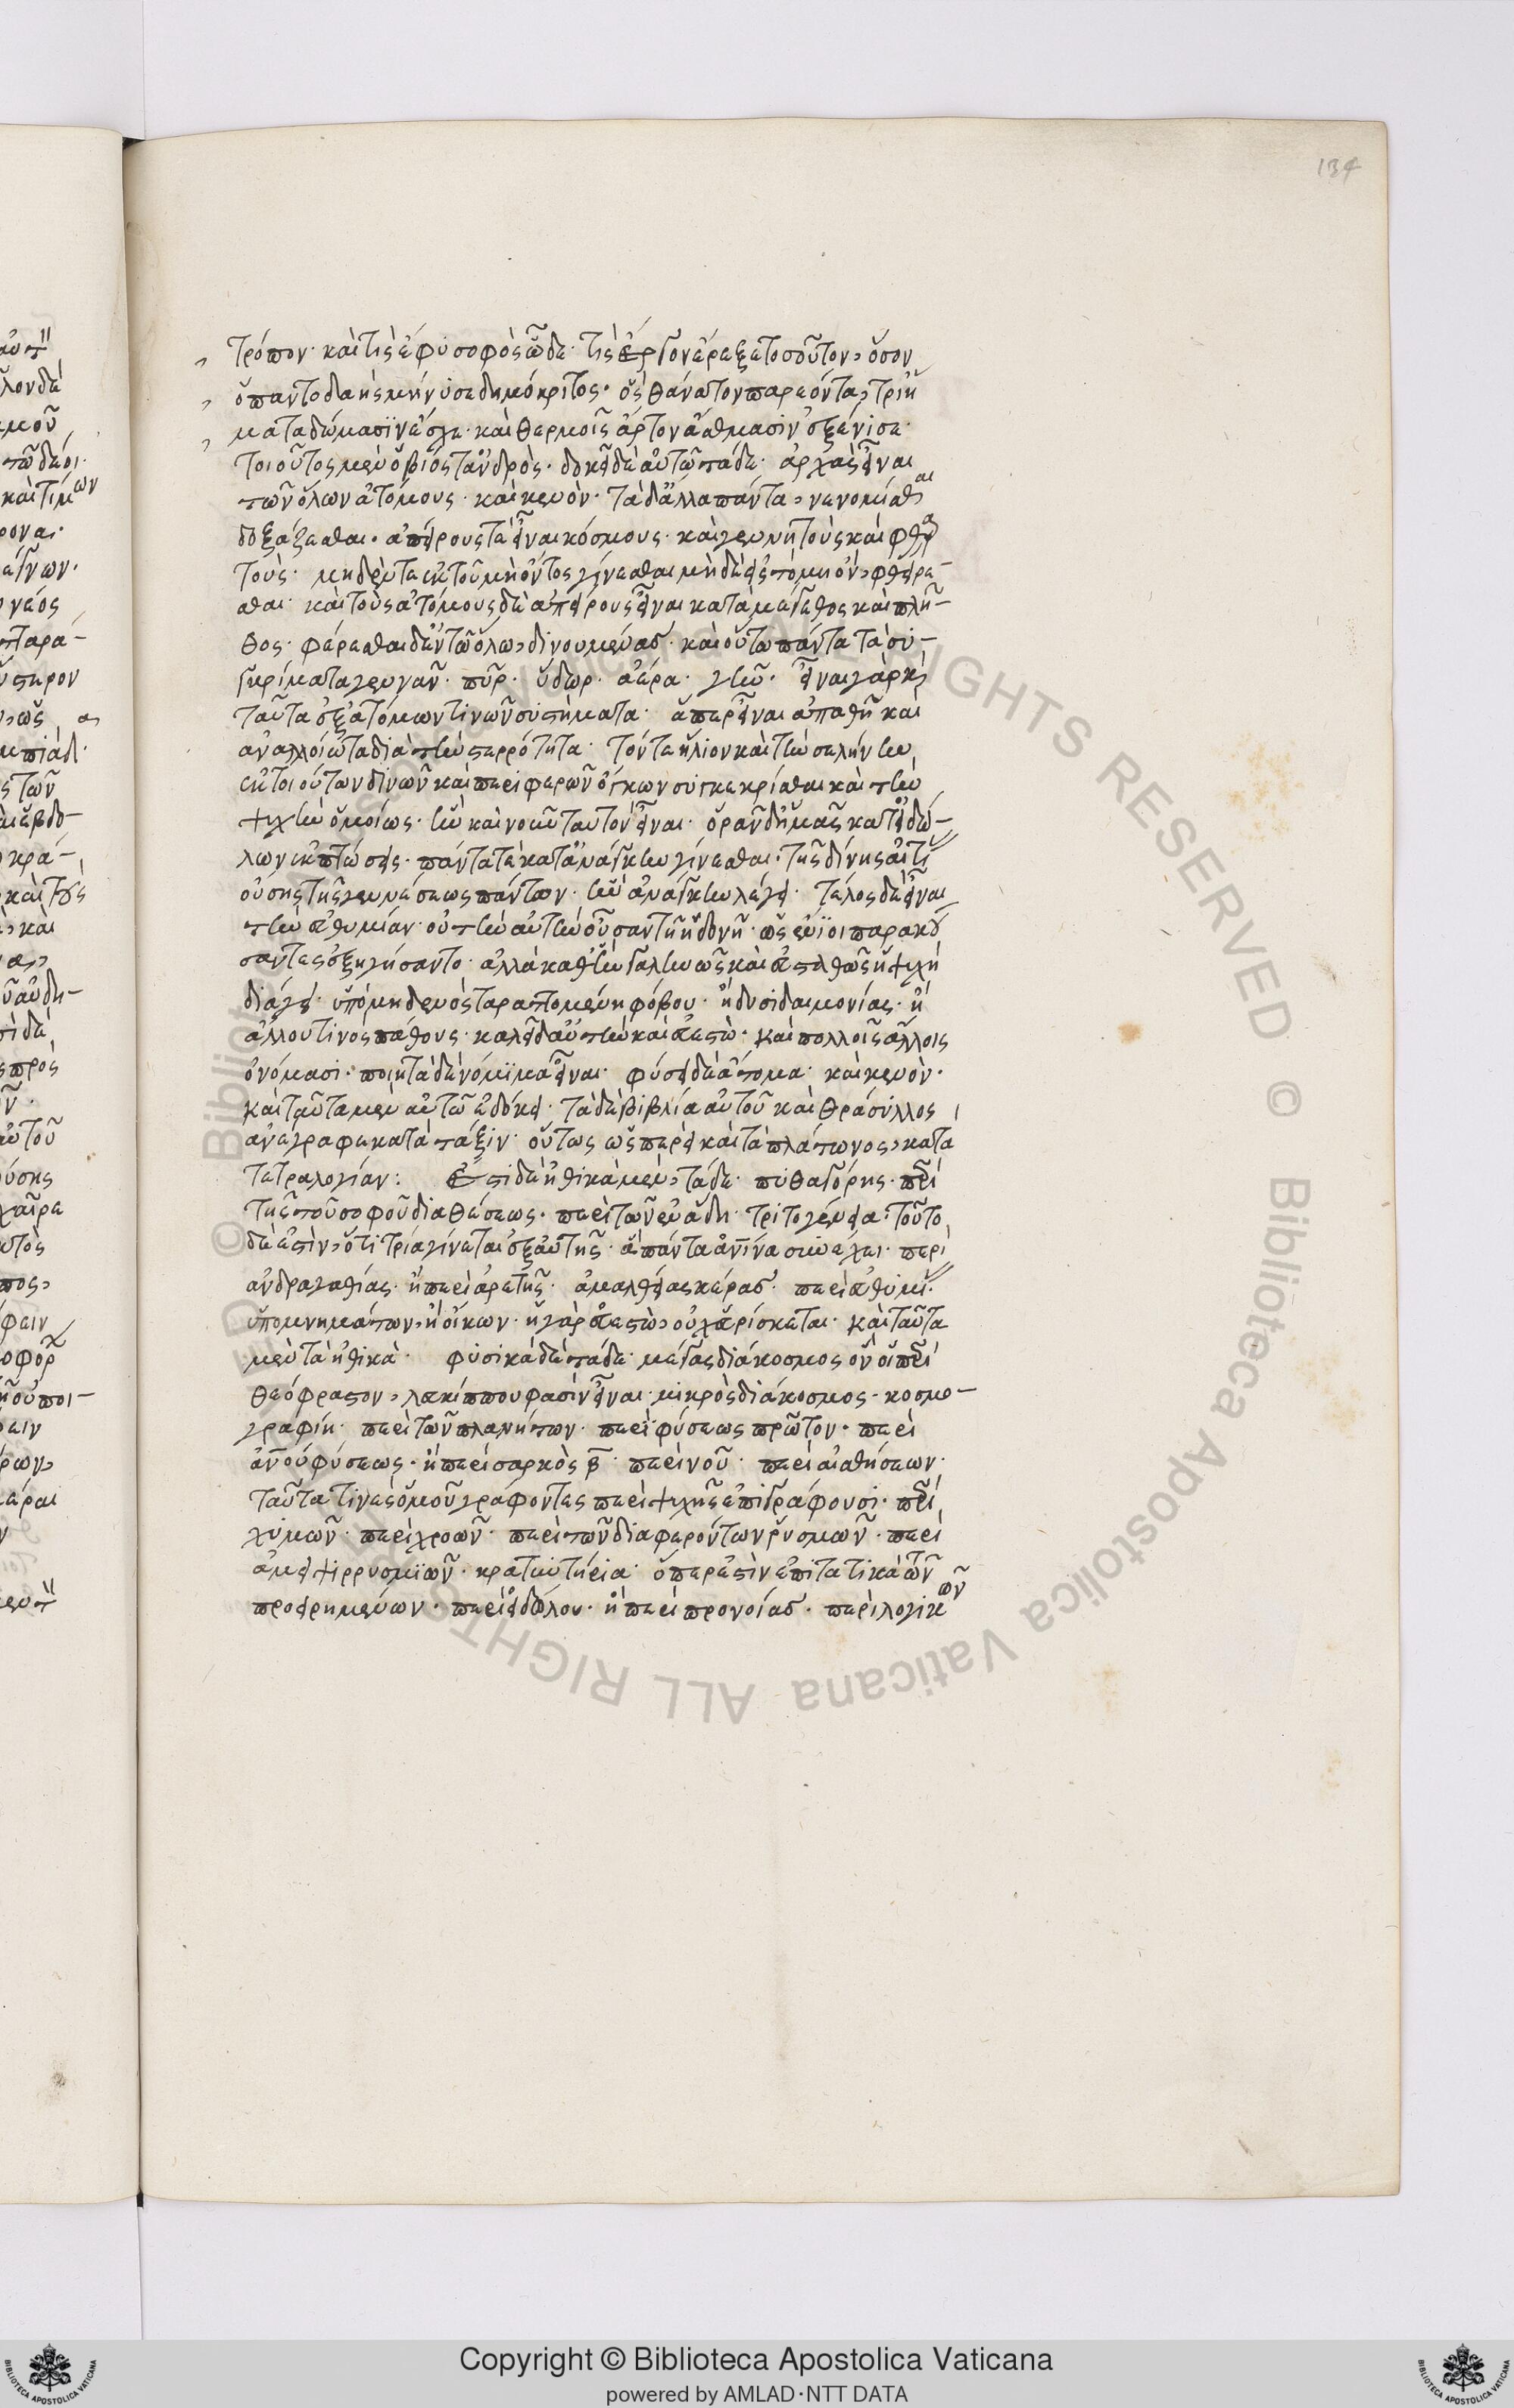 134
τρόπον· καὶ τίς ἔφυ σοφὸς ὧδε· τίς ἔργον ἔρεξε τοσοῦτον, ὅσον
ὁ παντοδαὴς μήνυσε δημόκριτος· ὃς θάνατον παρεόντα, τρι ἤ
ματα δώμασιν ἔσχε· καὶ θερμοῖς ἄρτον ἄσθμασιν ἐξένισε·
τοιοῦτος μὲν ὁ βίος τἀνδρὸς· δοκεῖ δὲ αὐτῷ τάδε· ἀρχὰς εἶναι
τῶν ὅλων ἀτόμους· καὶ κενὸν· τὰ δ' ἄλλα πάντα, νενομίσθαι
δοξάζεσθαι· ἀπείρους τὲ εἶναι κόσμους· καὶ γεννητοὺς καὶ φθαρ
τοὺς· μηδέν τε ἐκ τοῦ μὴ ὄντος γίνεσθαι μηδὲ εἰς τὸ μὴ ὂν, φθείρε-
σθαι· καὶ τοὺς ἀτόμους δὲ ἀπείρους εἶναι κατὰ μέγεθος καὶ πλῆ-
θος· φέρεσθαι δ' ἐν τῷ ὅλῳ, δινουμένας· καὶ οὕτω πάντα τὰ συ-
γκρίματα γεννᾶν· πῦρ· ὕδωρ· ἀέρα· γῆν· εἶναι γὰρ καὶ
ταῦτα ἐξ ἀτόμων τινῶν συστήματα· ἅπερ εἶναι ἀπαθῆ καὶ
ἀναλλοίωτα διὰ τὴν στερρότητα· τόν τε ἥλιον καὶ τὴν σελήνην
ἐκ τοιούτων δινῶν καὶ περιφερῶν ὄγκων συγκεκρίσθαι καὶ τὴν
ψυχὴν ὁμοίως· ἣν καὶ νοῦν ταυτὸν εἶναι· ὁρᾶν δ' ἡμᾶς κατ' εἰδώ-
λων ἐκπτώσεις· πάντά τε κατ' ἀνάγκην γίνεσθαι· τῆς δίνης αἰτί
ούσης τῆς γεννέσεως πάντων· ἣν ἀνάγκην λέγει· τέλος δὲ εἶναι
τὴν εὐθυμίαν· οὐ τὴν αὐτὴν οὖσαν τῇ ἡδονῇ· ὡς ἔνϊοι παρακού
σαντες ἐξηγήσαντο· ἀλλὰ καθ' ἣν γαληνῶς καὶ εὐσταθῶς ἡ ψυχὴ
διάγει· ὑπὸ μηδενὸς ταραττομένη φόβου· ἢ δυσιδαιμονίας· ἢ
ἄλλου τινος πάθους· καλεῖ δ' αὐτὴν καὶ εὐεστὼ· καὶ πολλοῖς ἄλλοις
ὀνόμασι· ποιητὰ δὲ νόμϊμα εἶναι· φύσει δὲ ἄτομα· καὶ κενὸν·
καὶ ταῦτα μὲν αὐτῷ ἐδόκει· τὰ δὲ βιβλία αὐτοῦ καὶ θρασύλλος
ἀνέγραφε κατὰ τάξιν· οὕτως ὥσπερεὶ καὶ τὰ πλάτωνος, κατὰ
τετραλογίαν: Ἔστι δὲ ἠθικὰ μὲν, τάδε· πυθαγόρης· περὶ
τῆς τοῦ σοφοῦ διαθέσεως· περὶ τῶν ἐν ᾅδη· τριτογένεια· τοῦτο
δὲ ἐστὶν, ὅτι τρία γίνεται ἐξ αὐτῆς· ἃ πάντα ἀνθρώπινα συνέχει· περὶ
ἀνδραγαθίας· ἢ περὶ ἀρετῆς· ἀμαλθείας κέρας· περὶ εὐθυμί·
ὑπομνημάτων, ἠθικῶν· ἡ γὰρ εὐεστὼ, οὐχ εὑρίσκεται· καὶ ταῦτα
μὲν τὰ ἠθικὰ· φυσικὰ δὲ τάδε· μέγας διάκοσμος ὃν οἱ περὶ
θεόφραστον, λευκίππου φασὶν εἶναι· μικρὸς διάκοσμος· κοσμο-
γραφίη· περὶ τῶν πλανήτων· περὶ φύσεως πρῶτον· περὶ
ἀνθρώπου φύσεως· ἢ περὶ σαρκὸς β̅· περὶ νοῦ· περὶ αἰσθήσεων·
ταῦτα τινὲς ὁμοῦ γράφοντες περὶ ψυχῆς ἐπιγράφουσι· περὶ
χυμῶν· περὶ χροῶν· περὶ τῶν διαφερόντων ῥυσμῶν· περὶ
ἀμειψιρρυσμϊῶν· κρατυντήρια· ὅπερ ἐστὶν ἐπιτατικὰ τῶν
προειρημένων· περὶ εἰδώλου· ἢ περὶ προνοίας· περὶ λογικῶν
Copyright © Biblioteca Apostolica Vaticana
powered by AMLAD·NTT DATA